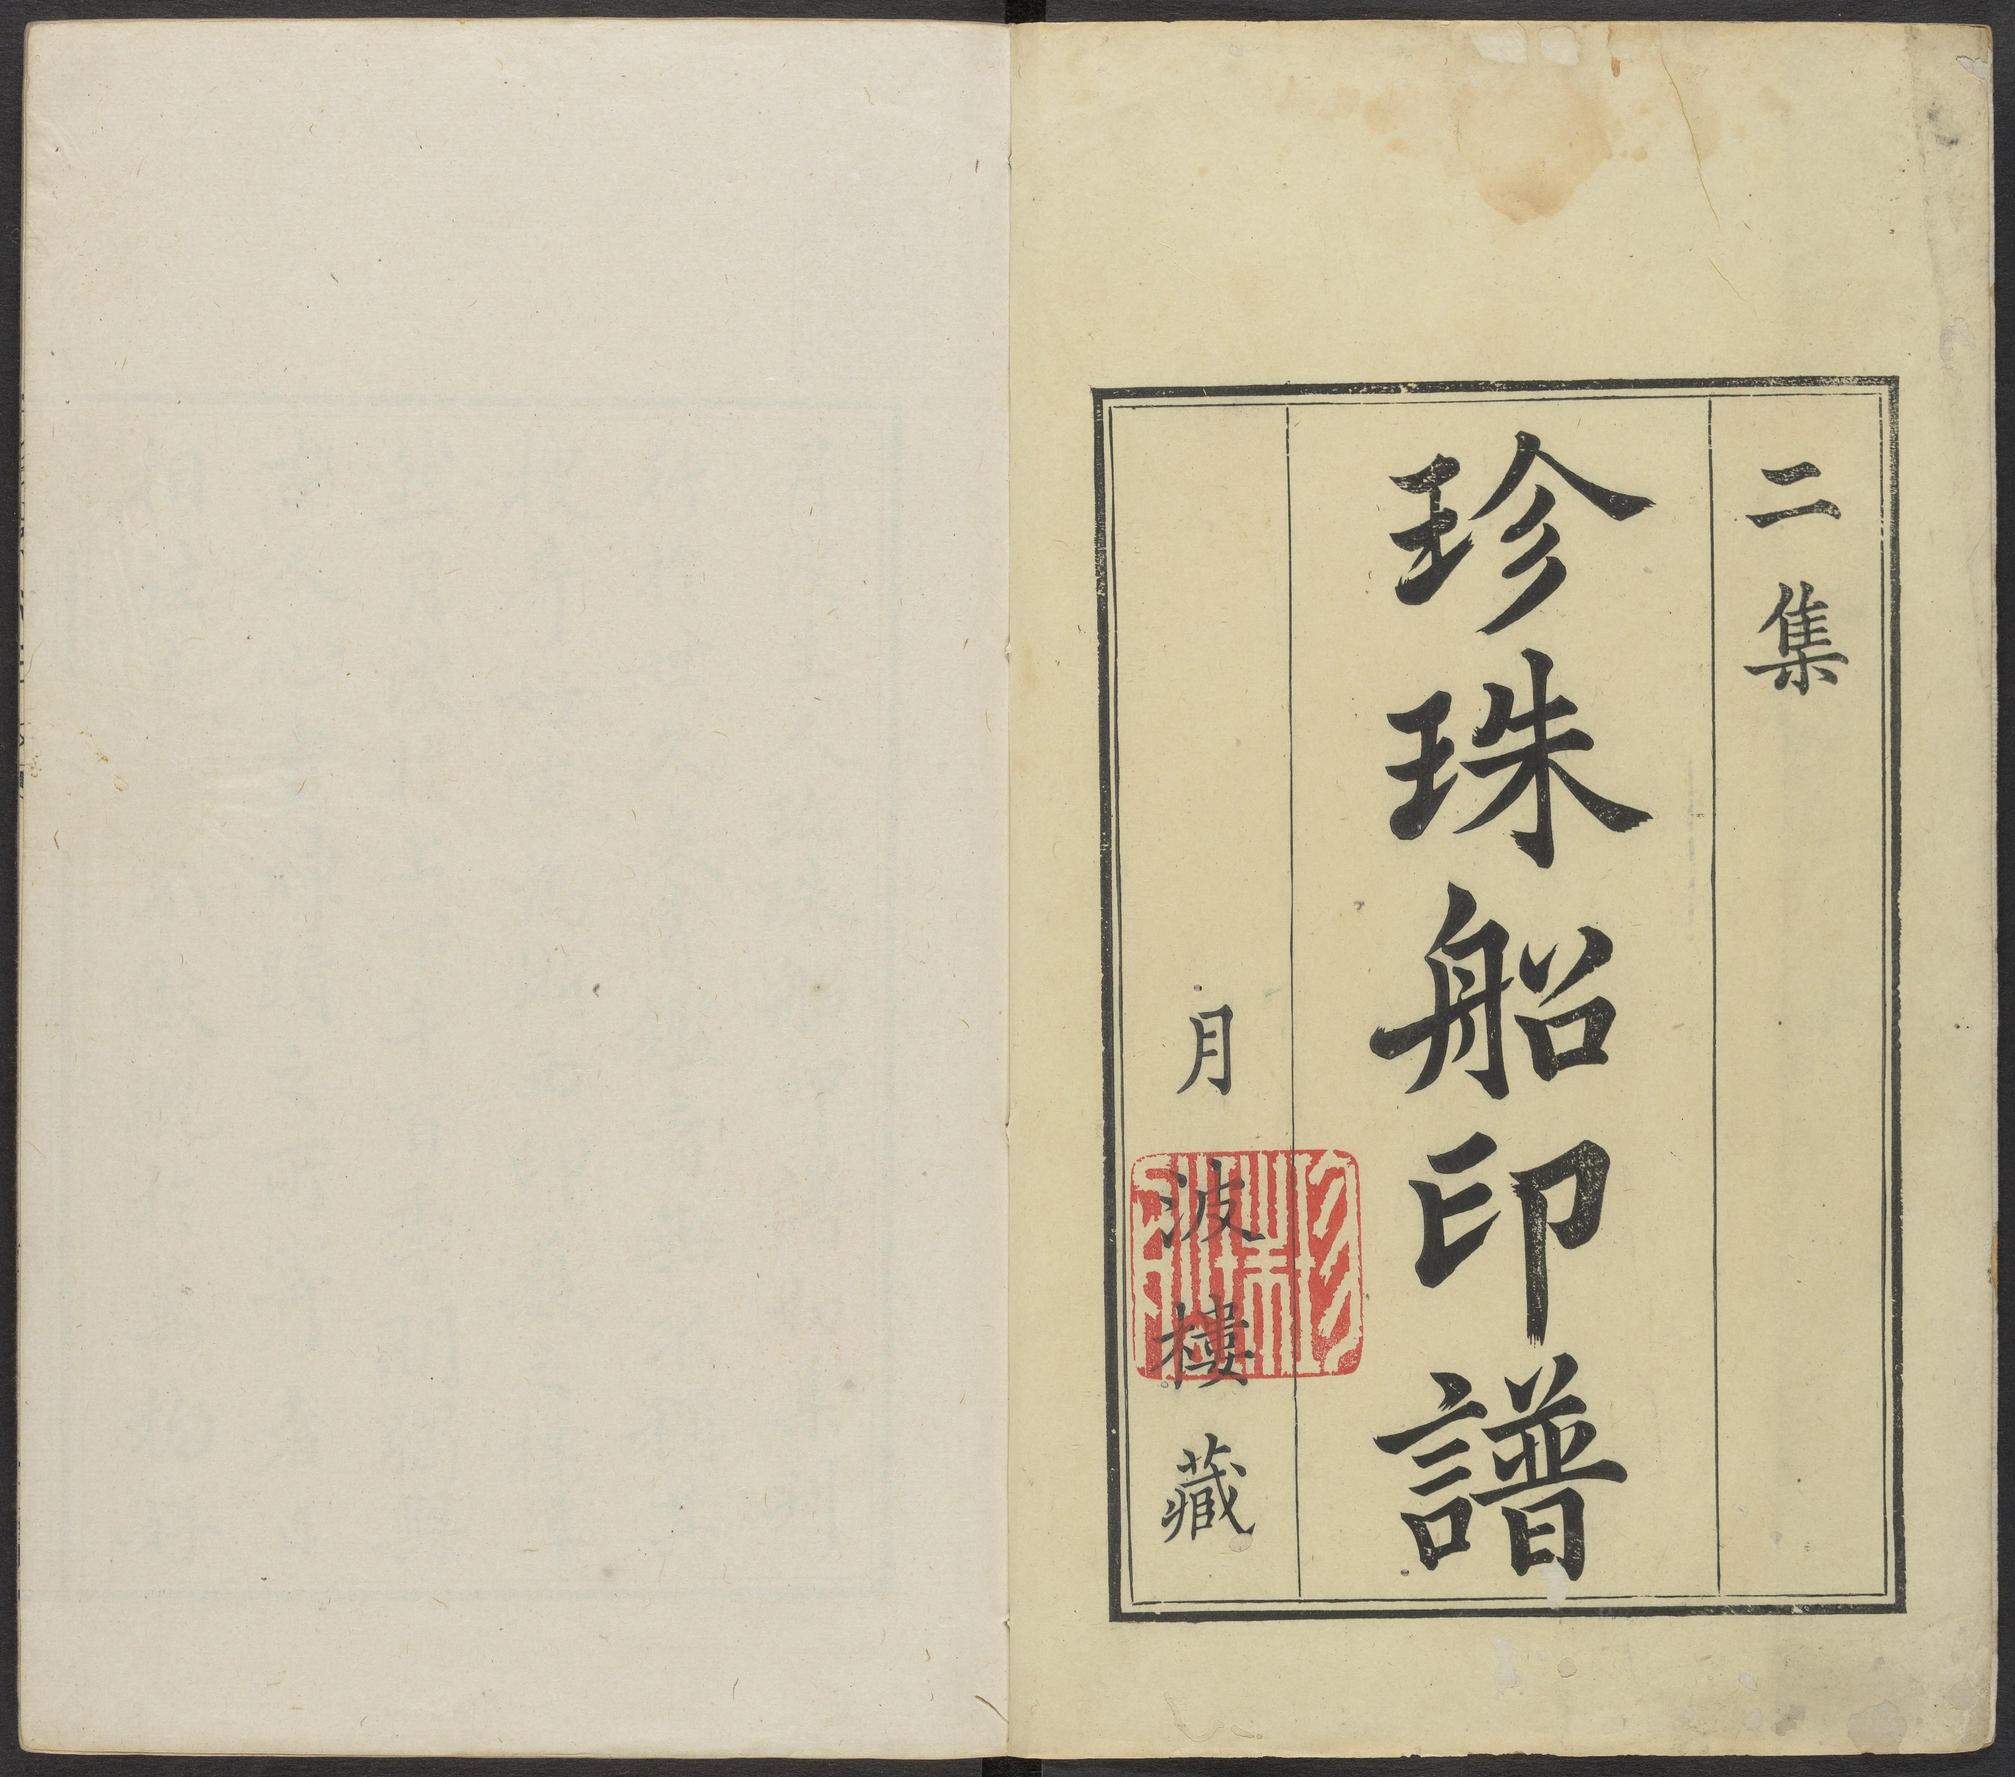 二集
珍珠船印譜
月波樓藏